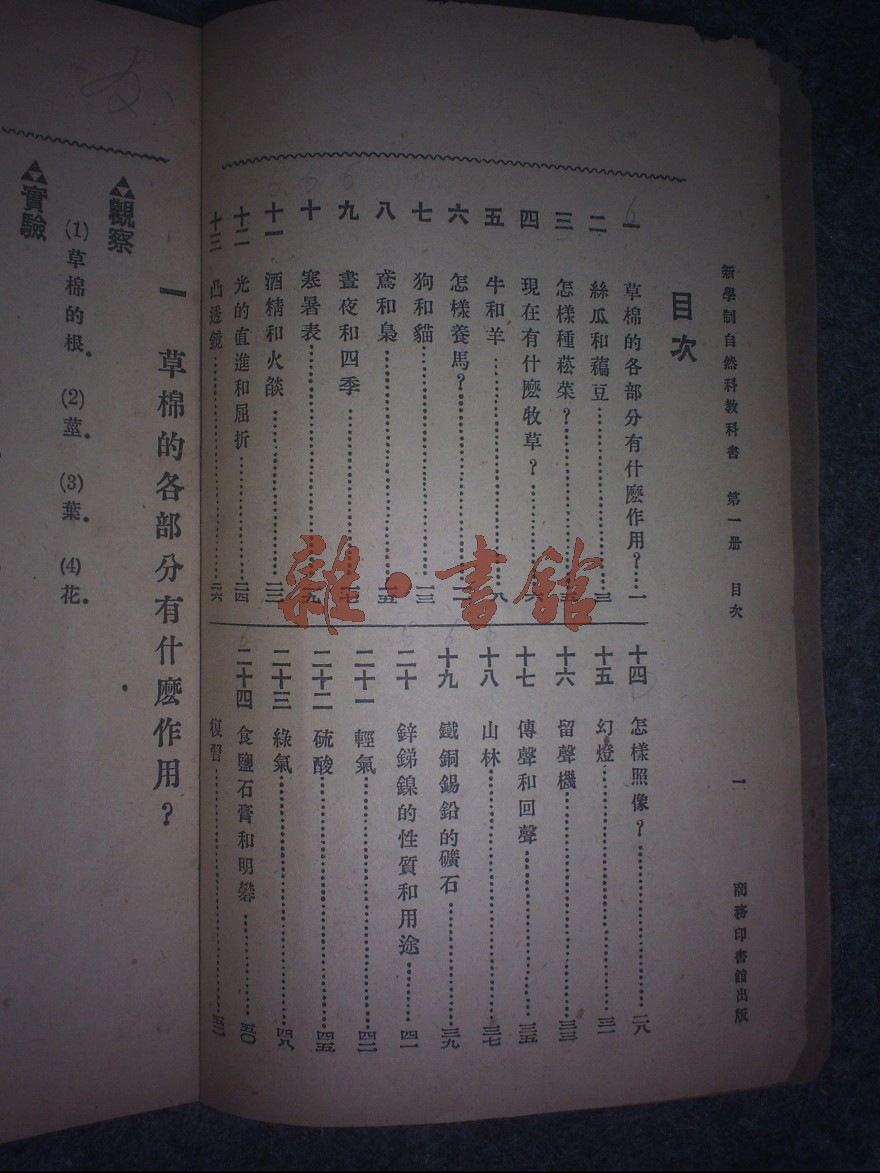 新學制自然科教科書 第一册 目次 一 商務印書館出版
目次
一 草棉的各部分有什麽作用?……一
二 絲瓜和藊豆……三
三 怎樣種菘菜?……五
四 現在有什麽牧草?……六
五 牛和羊……八
六 怎樣養馬?……一一
七 狗和貓……一三
八 鳶和梟……一五
九 晝夜和四季……一七
十 寒暑表……一九
十一 酒精和火燄……二二
十二 光的直進和屈折……二四
十三 凸透鏡……二六
十四 怎樣照像?……二八
十五 幻燈……三一
十六 留聲機……三三
十七 傳聲和回聲……三五
十八 山林……三七
十九 鐵銅錫鉛的礦石……三九
二十 鋅銻鎳的性質和用途……四一
二十一 輕氣……四二
二十二 硫酸……四五
二十三 綠氣……四八
二十四 食鹽石膏和明礬……五〇
復習……五二
一 草棉的各部分有什麽作用?
觀察
(1)草棉的根。 (2)莖。 (3)葉。 (4)花。
實驗
雜·書館